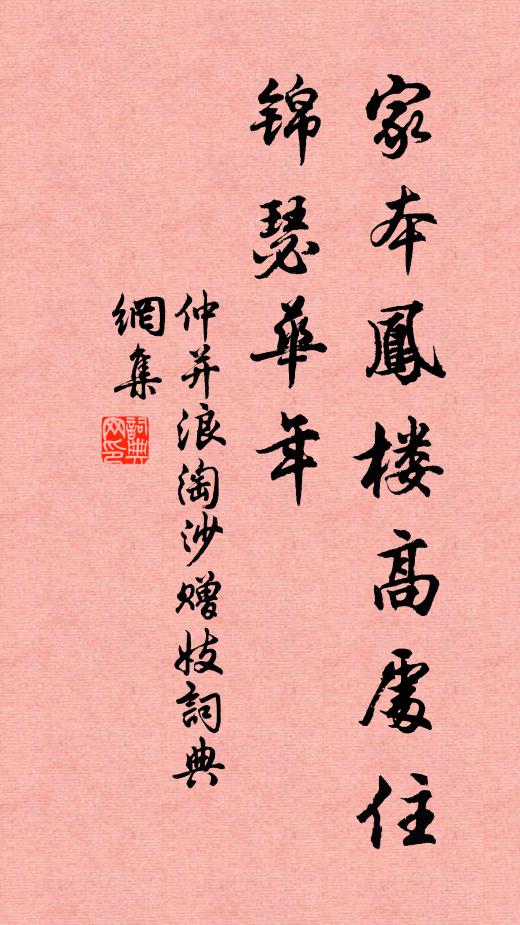 家本鳳楼高處住
锦瑟華年
仲并浪淘沙赠妓詞典
網集
詞典网印